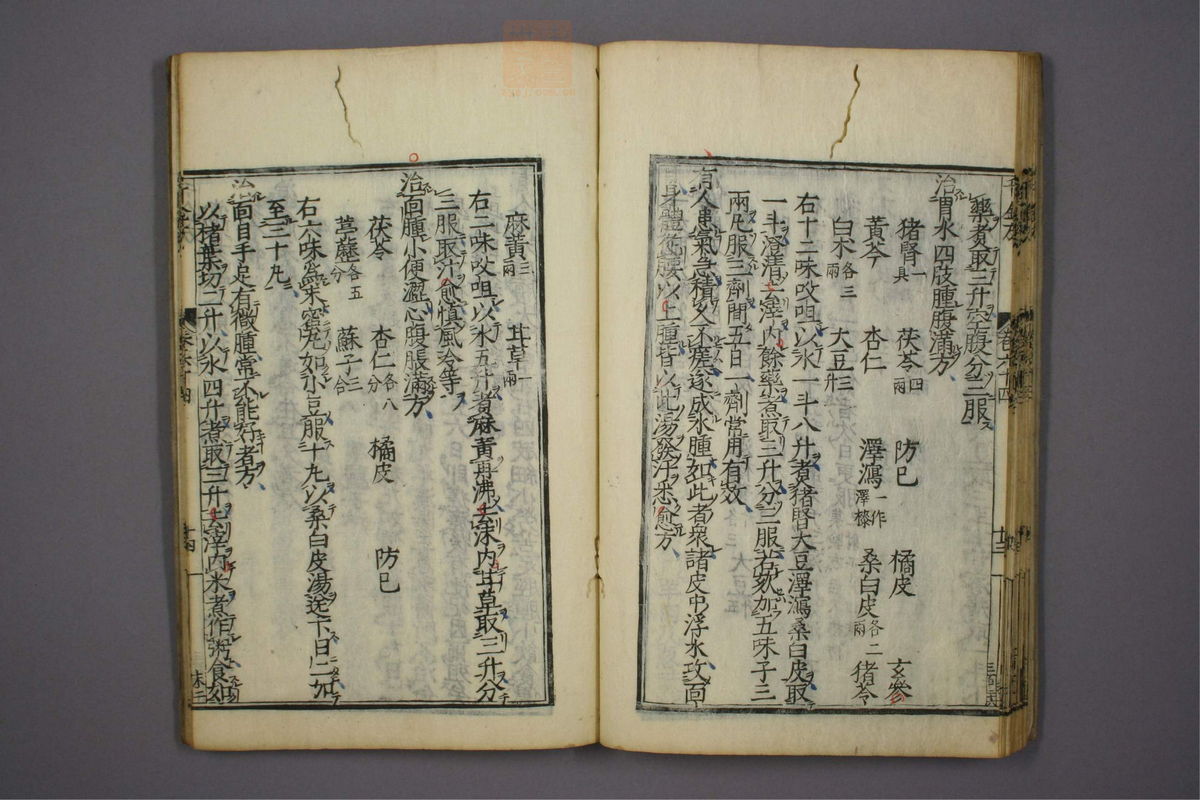 藥煮取三升空腹分二服
治胃水四肢腫腹滿方
猪腎一具 茯苓四兩 防已 橘皮 玄參
黃芩 杏仁 澤瀉一作澤漆 桑白皮各二兩 猪苓
白朮各三兩 大豆三升
右十二味㕮咀以水一斗八升煮猪腎大豆澤瀉桑白皮取
一斗澄清去滓內餘藥煮取三升分三服若欬加五味子三
兩凡服三劑間五日一劑常用有效
有人患氣急積久不瘥遂成水腫如此者衆諸皮中浮水攻面
身體從腰以上腫皆以此湯發汗悉愈方
麻黃三兩 甘草一兩
右二味㕮咀以水五升煮麻黃再沸去沫內甘草取三升分
三服取汗愈慎風冷等
治面腫小便澀心腹脹滿方
茯苓 杏仁各八分 橘皮 防已
葶藶各五分 蘇子三合
右六味爲末蜜丸如小豆服十丸以桑白皮湯送下日二加
至三十丸
治面目手足有微腫常不能好者方
以猪葉切二升以水四升煮取三升去滓內米煮作粥食如